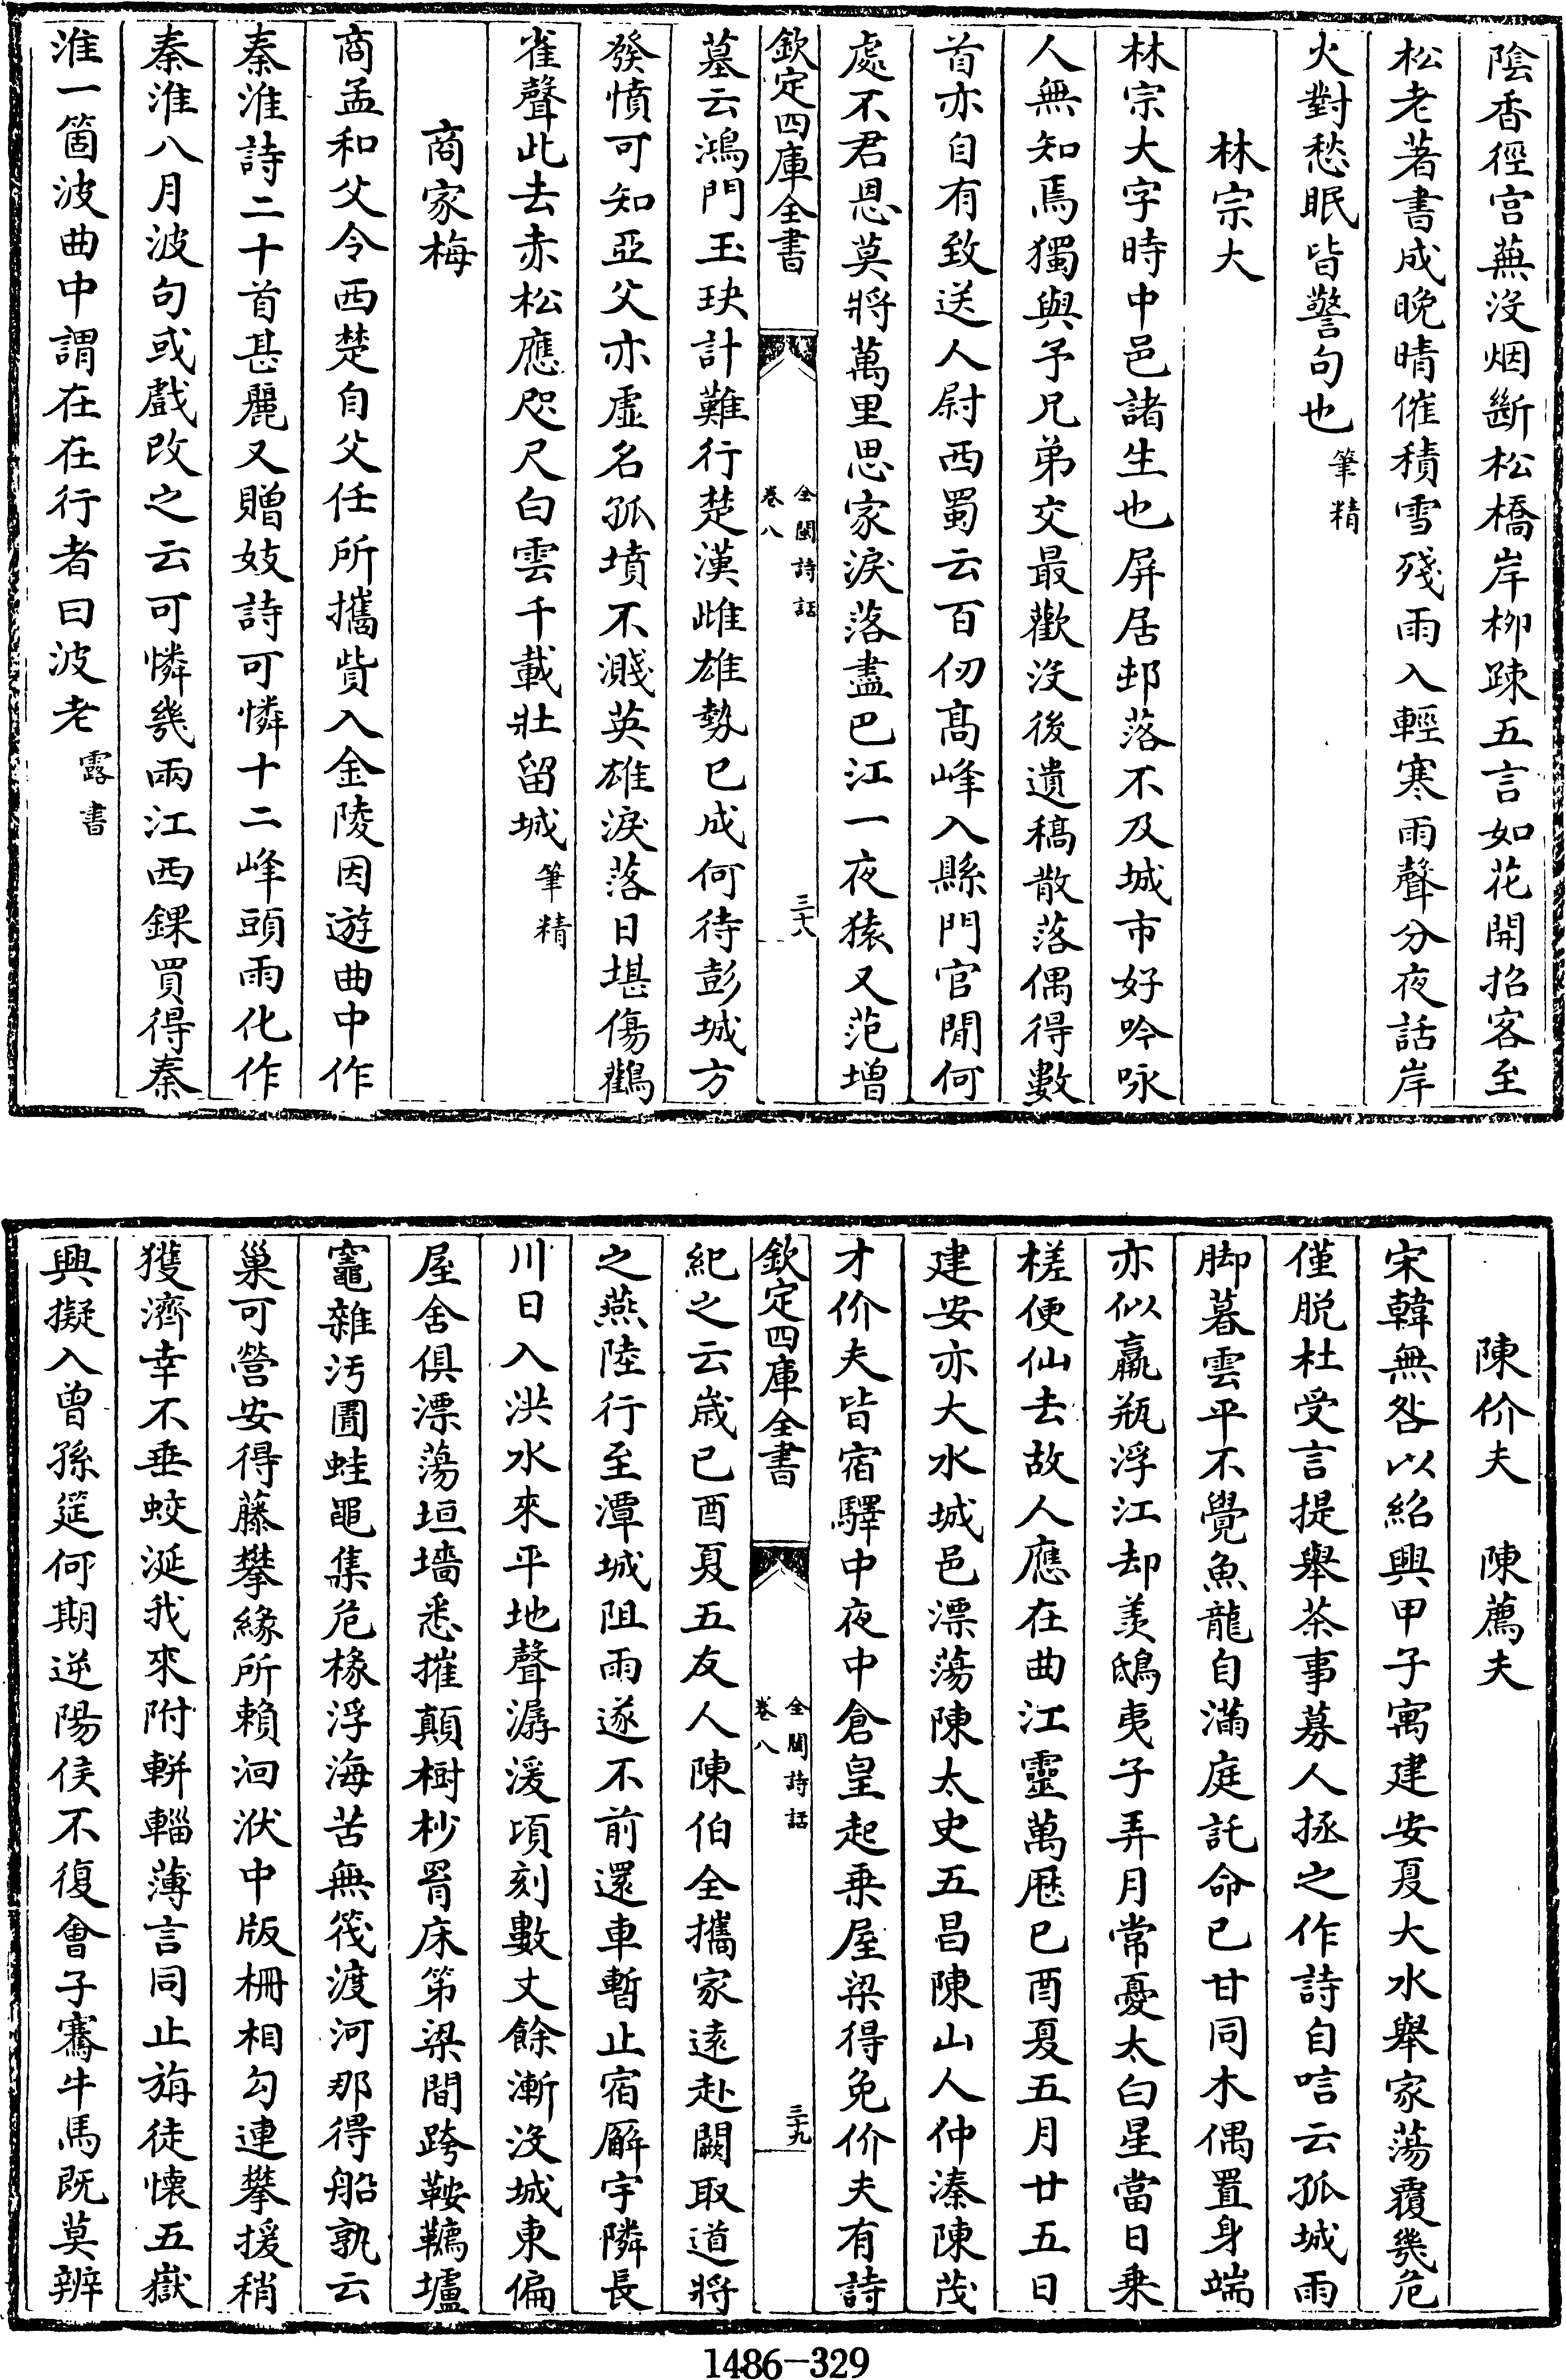 陰香徑宫蕪没烟斷松橋岸栁踈五言如花開招客至
松老著書成晚晴催積雪殘雨入輕寒雨聲分夜話岸
火對愁眠皆警句也筆精
林宗大
林宗大字時中邑諸生也屏居邨落不及城市好吟咏
人無知焉獨與予兄弟交最歡没後遺稿散落偶得數
首亦自有致送人尉西蜀云百仞髙峰入縣門官閒何
處不君恩莫將萬里思家淚落盡巴江一夜猿又范增
欽定四庫全書
全閩詩話
卷八
三十八
墓云鴻門玉玦計難行楚漢雌雄勢已成何待彭城方
發憤可知亞父亦虛名孤墳不濺英雄淚落日堪傷鸛
雀聲此去赤松應咫尺白雲千載壯留城筆精
商家梅
商孟和父令西楚自父任所攜貲入金陵因遊曲中作
秦淮詩二十首甚麗又贈妓詩可憐十二峰頭雨化作
秦淮八月波句或戲改之云可憐幾兩江西錁買得秦
淮一箇波曲中謂在在行者曰波老露書
陳价夫　陳薦夫
宋韓無咎以紹興甲子寓建安夏大水舉家蕩覆幾危
僅脱杜受言提舉茶事募人拯之作詩自唁云孤城雨
脚暮雲平不覺魚龍自滿庭託命已甘同木偶置身端
亦似羸瓶浮江却羡鴟夷子弄月常憂太白星當日乗
槎便仙去故人應在曲江靈萬厯己酉夏五月廿五日
建安亦大水城邑漂蕩陳太史五昌陳山人仲溱陳茂
才价夫皆宿驛中夜中倉皇起乗屋梁得免价夫有詩
欽定四庫全書
全閩詩話
卷八
三十九
紀之云歲已酉夏五友人陳伯全攜家逺赴闕取道將
之燕陸行至潭城阻雨遂不前還車暫止宿廨宇隣長
川日入洪水來平地聲潺湲頃刻數丈餘漸没城東偏
屋舍俱漂蕩垣墻悉摧顛樹杪罥床笫梁間跨鞍韉壚
竈雜汚圊蛙黽集危椽浮海苦無筏渡河那得船孰云
巢可營安得藤攀緣所賴洄洑中版柵相勾連攀援稍
獲濟幸不垂蛟涎我來附輧輜薄言同止旃徒懐五嶽
興擬入曾孫筵何期逆陽侯不復會子騫牛馬既莫辨
1486-329